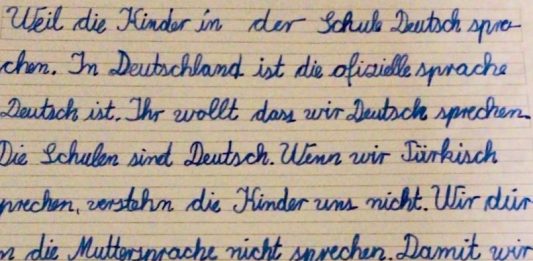 Weil die Kinder in der Schule Deutsch spre-
chen. In Deutschland ist die ofizielle sprache
Deutsch ist. Ihr wollt dass wir Deutsch sprechen.
Die Schulen sind Deutsch. Wenn wir Türkisch
prechen, verstehn die Kinder uns nicht. Wir dür-
n die Muttersprache nicht sprechen. Damit wir